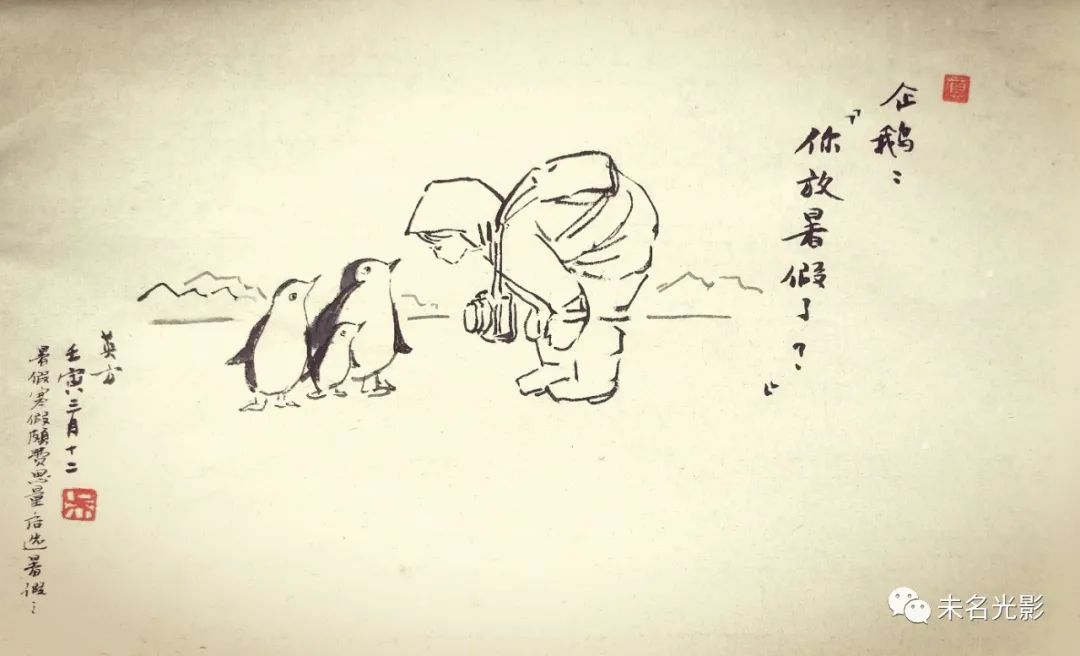 企鹅：
“你放暑假了？”
英方
壬寅三月十二
暑假寒假颇费思量后选暑假：
未名光影